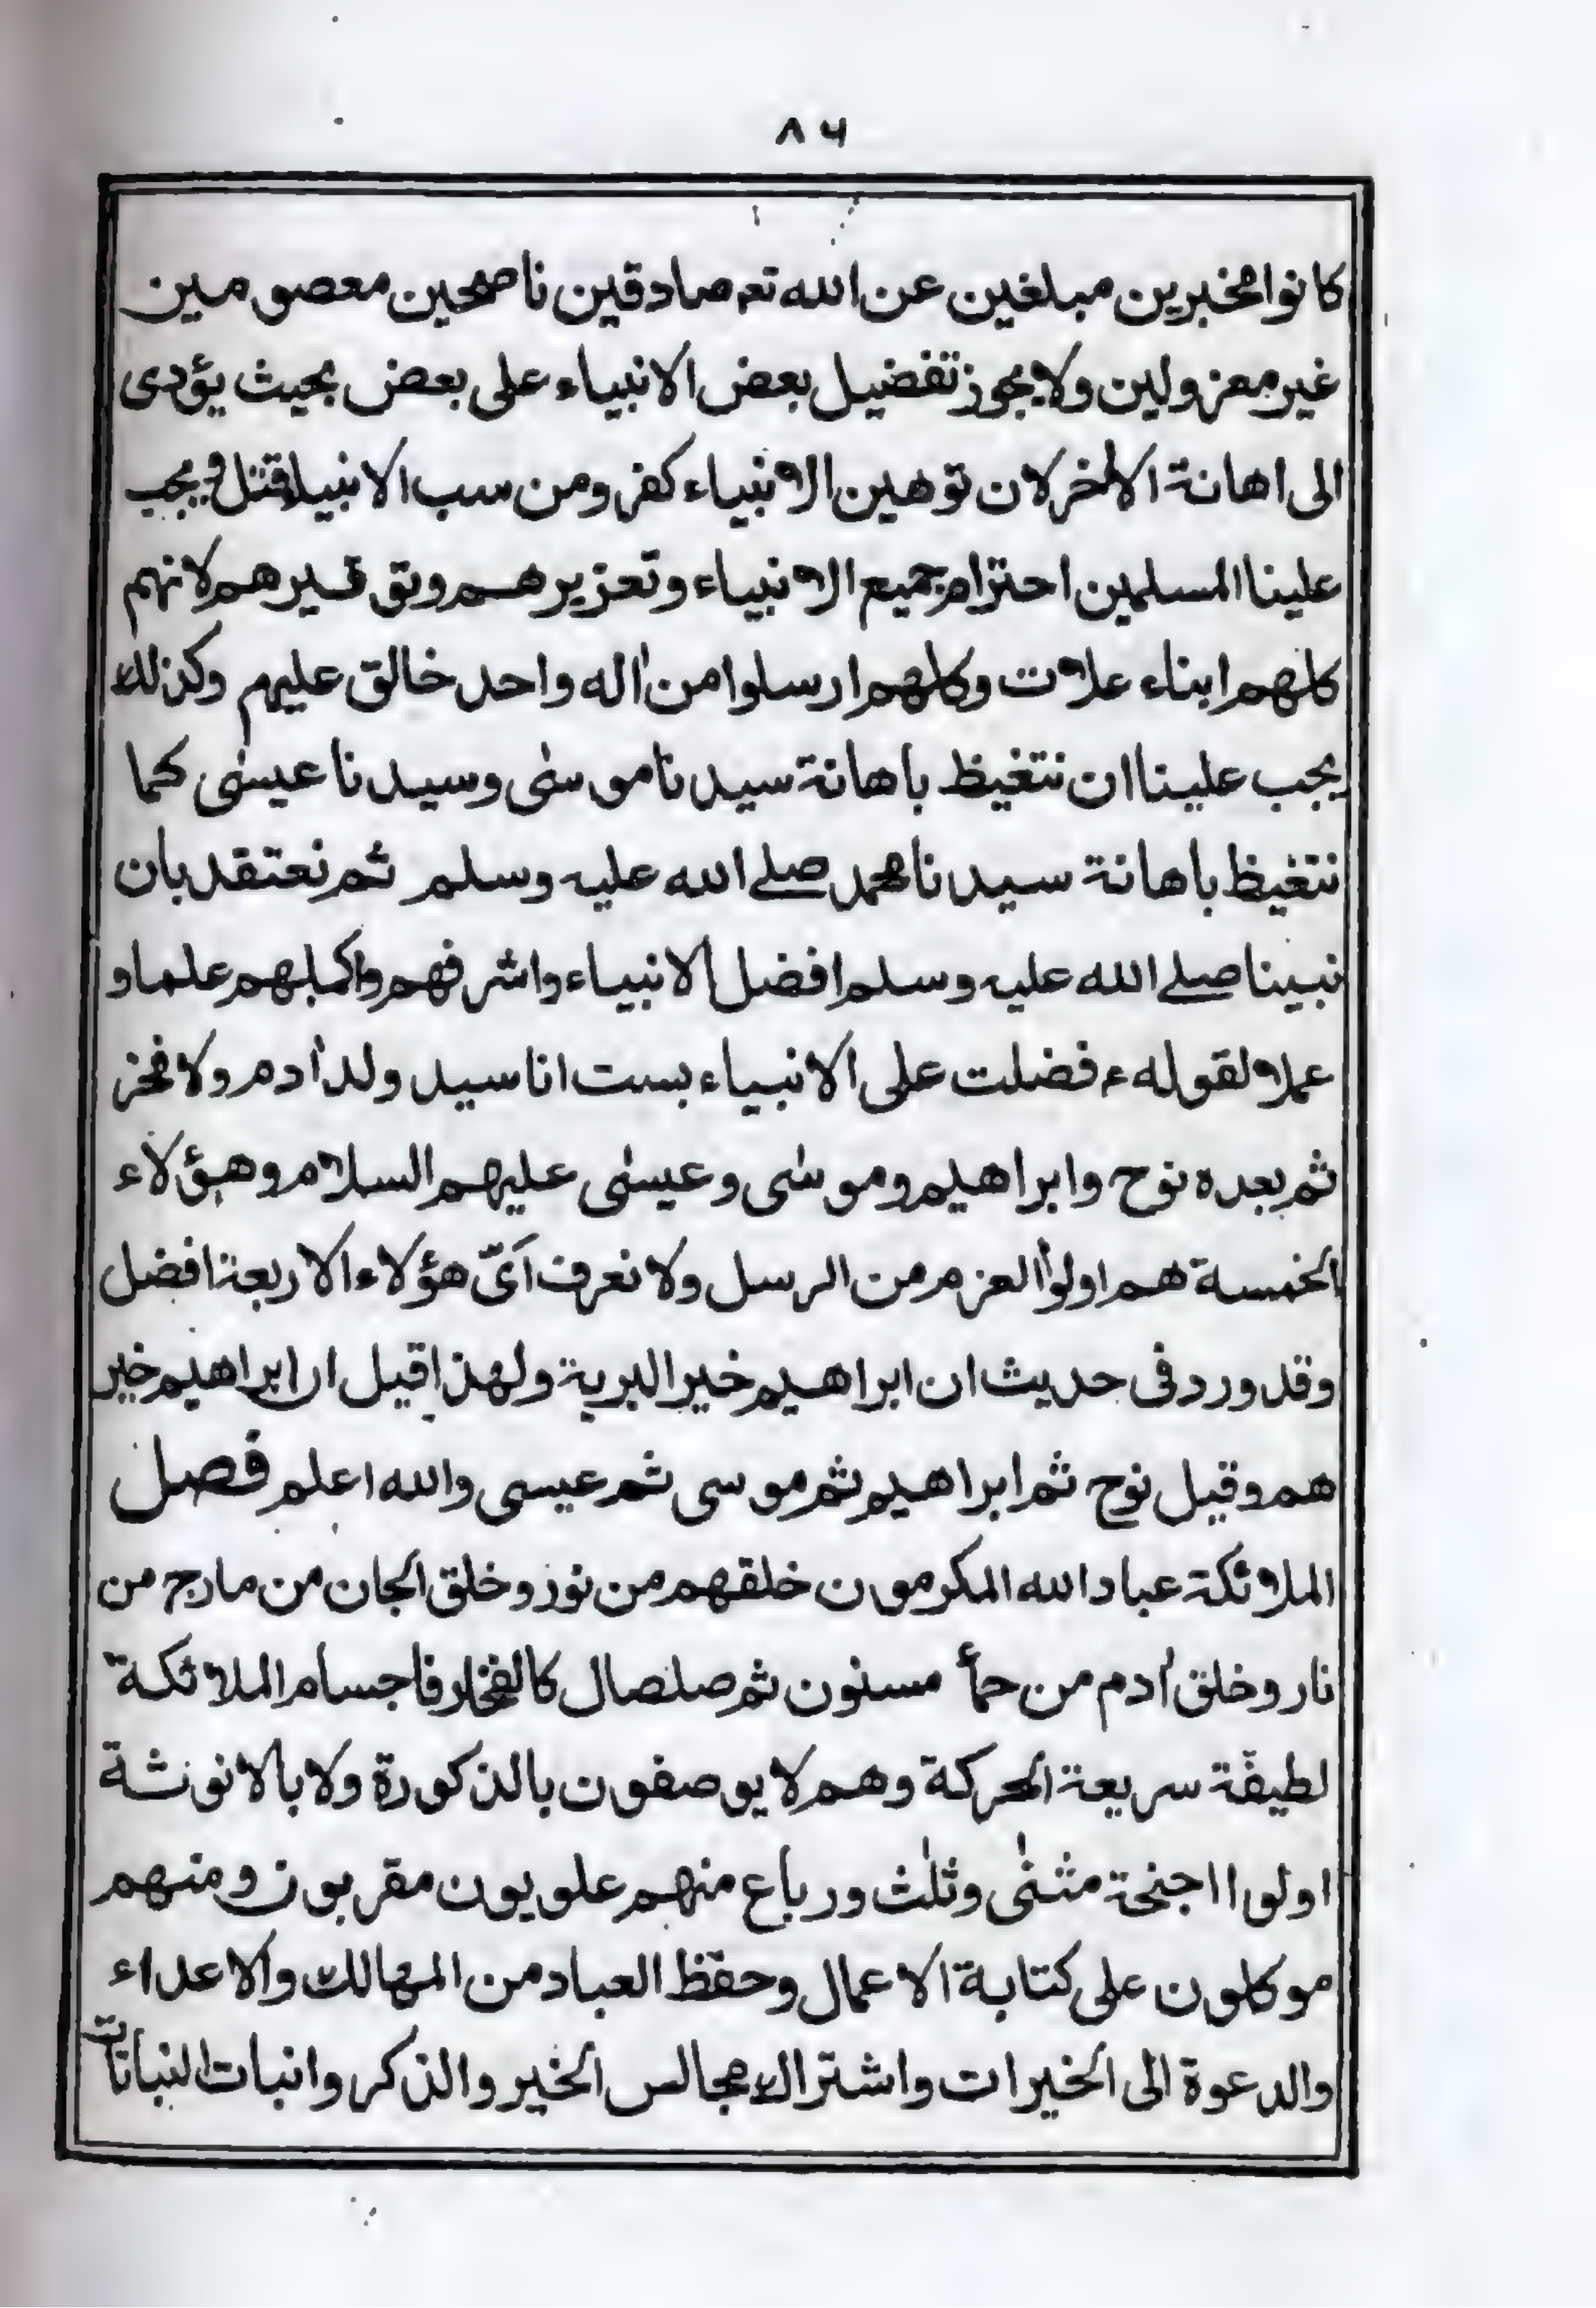 ٨٦
كانوا مخبرين مبلغين عن الله تعہ صادقين ناصحين معصومين
غير معزولين ولا يجوز تفضيل بعض الانبياء على بعض بحيث يؤدى
الى اهانة الأخر لان توهين الانبياء كفر ومن سب الانبياء قتل ويجب
علينا المسلمين احترام جميع الانبياء وتعزيرهم وتوقيرهم لانهم
كلهم ابناء علات وكلهم ارسلوا من اٰله واحد خالق عليهم وكذلك
يجب علينا ان نتغيظ باهانة سيدنا موسٰى وسيدنا عيسٰى كما
نتغيظ باهانة سيدنا محمد صلے الله عليه وسلم ثم نعتقد بان
نبينا صلے الله عليه وسلم افضل الانبياء واشرفهم واكملهم علما و
عملا لقوله ؑ فضلت على الانبياء بست انا سيد ولد اٰدم ولا فخر
ثم بعده نوح وابراهيم وموسٰى وعيسٰى عليهم السلام وهؤلاء
الخمسة هم اولوا العزم من الرسل ولا نعرف اَىّ هؤلاء الاربعة افضل
وقد ورد فى حديث ان ابراهيم خير البرية ولهذا قيل ان ابراهيم خير
هم وقيل نوح ثم ابراهيم ثم موسى ثم عيسى والله اعلم فصل
الملائكة عباد الله المكرمون خلقهم من نور وخلق الجان من مارج من
نار وخلق اٰدم من حمأ مسنون ثم صلصال كالفخار فاجسام الملائكة
لطيفة سريعة الحركة وهم لا يوصفون بالذكورة ولا بالانوثة
اولوا اجنحة مثنٰى وثلٰث ورباع منهم علويون مقربون ومنهم
موكلون على كتابة الاعمال وحفظ العباد من المهالك والاعداء
والدعوة الى الخيرات واشتراك مجالس الخير والذكر وانبات النباتات